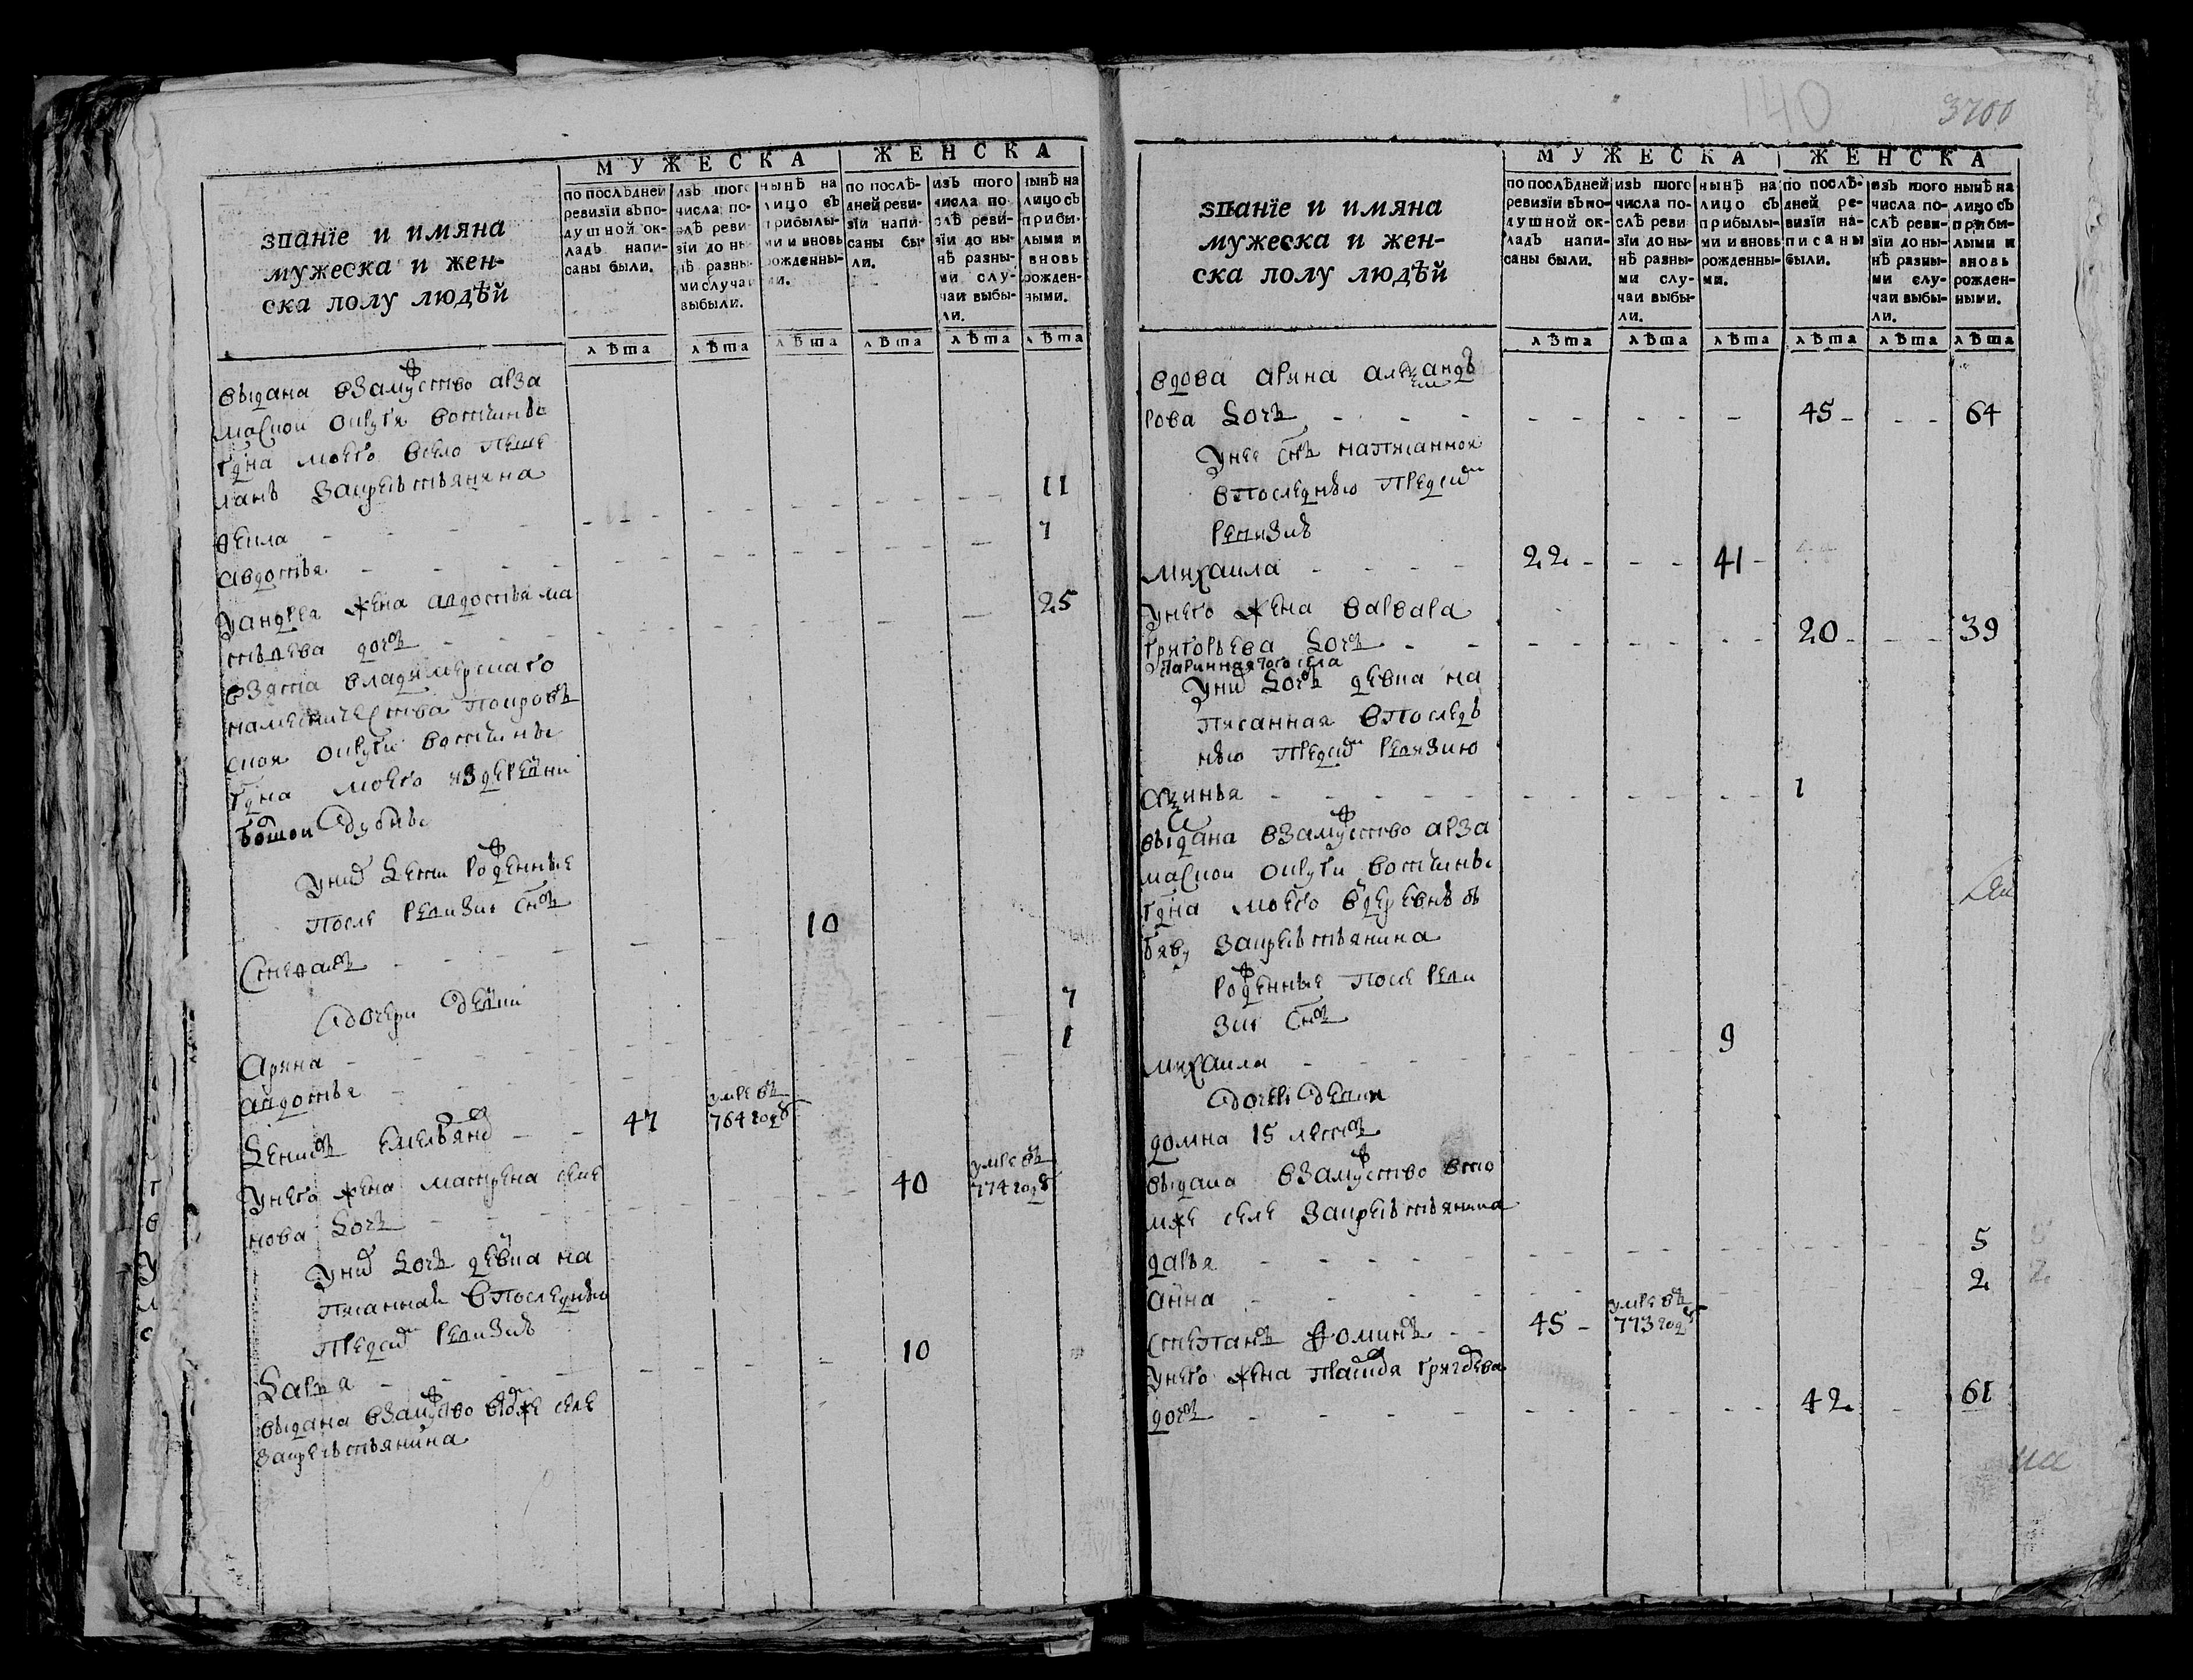 140
3700
МУЖЕСКА
ЖЕНСКА
званїе и имяна
мужеска и жен-
ска полу людѣй
по послѣдней ревизїи въ подушной окладъ написаны были.
изъ того числа послѣ ревизїи до нынѣ разными случаи выбыли.
нынѣ на лицо съ прибылыми и вновь рожденными.
по послѣдней ревизїи написаны были.
изъ того числа послѣ ревизїи до нынѣ разными случаи выбыли.
нынѣ на лицо съ прибылыми и вновь рожденными.
лѣта лѣта лѣта лѣта лѣта лѣта
выдана взамужство арза
маской округи вотчины
гдна моего всело
ланъ закрестьянина
фекла - - - - 11
авдотья - - - - 7
Уандрея жена авдотья ма
твѣева дочь - - - 25
взята владимерскаго
наместничества покровъ
ской округи вотчины
гдна моего издеревни
Унихъ дети рожденные
после ревизии снъ
Степанъ - - - 10
дочери девки
Арина - - - 7
авдотья - - - 1
Денисъ емельяновъ - - 47 умре въ 764 году
Унего жена матрена семе
нова дочь - - - 40 умре въ 774 году
Унихъ дочь девка на
писанная впоследнею
предсимъ ревизию
Дарья - - - 10
выдана взамужство втомже селе
закрестьянина
МУЖЕСКА
ЖЕНСКА
званїе и имяна
мужеска и жен-
ска полу людѣй
по послѣдней ревизїи въ подушной окладъ написаны были.
изъ того числа послѣ ревизїи до нынѣ разными случаи выбыли.
нынѣ на лицо съ прибылыми и вновь рожденными.
по послѣдней ревизїи написаны были.
изъ того числа послѣ ревизїи до нынѣ разными случаи выбыли.
нынѣ на лицо съ прибылыми и вновь рожденными.
лѣта лѣта лѣта лѣта лѣта лѣта
вдова арина алеѯандъ
рова дочь - - - 45 - - - 64
Унее снъ написанной
впоследнѣю предсимъ
ревизиѣ
михаила - - - - 22 - - - 41 -
Унего жена варвара
григорьева дочь - - - 20 - - - 39
старинная того села
Унихъ дочь девка на
писанная впоследъ
нѣю предсимъ ревизию
Аѯинья - - - - 1
выдана взамужство арза
маской округи вотчины
гдна моего вдеревнѣ
закрестьянина
рожденные после реви
зии снъ
михаила - - - - 9
дочери девки
домна 15 летъ
выдана взамужство вто
мже селе закрестьянина
дарья - - - - 5
анна - - - - 2
степанъ фоминъ - - 45 - умре въ 773 году
Унего жена григорьева
дочь - - - - 42 - 61